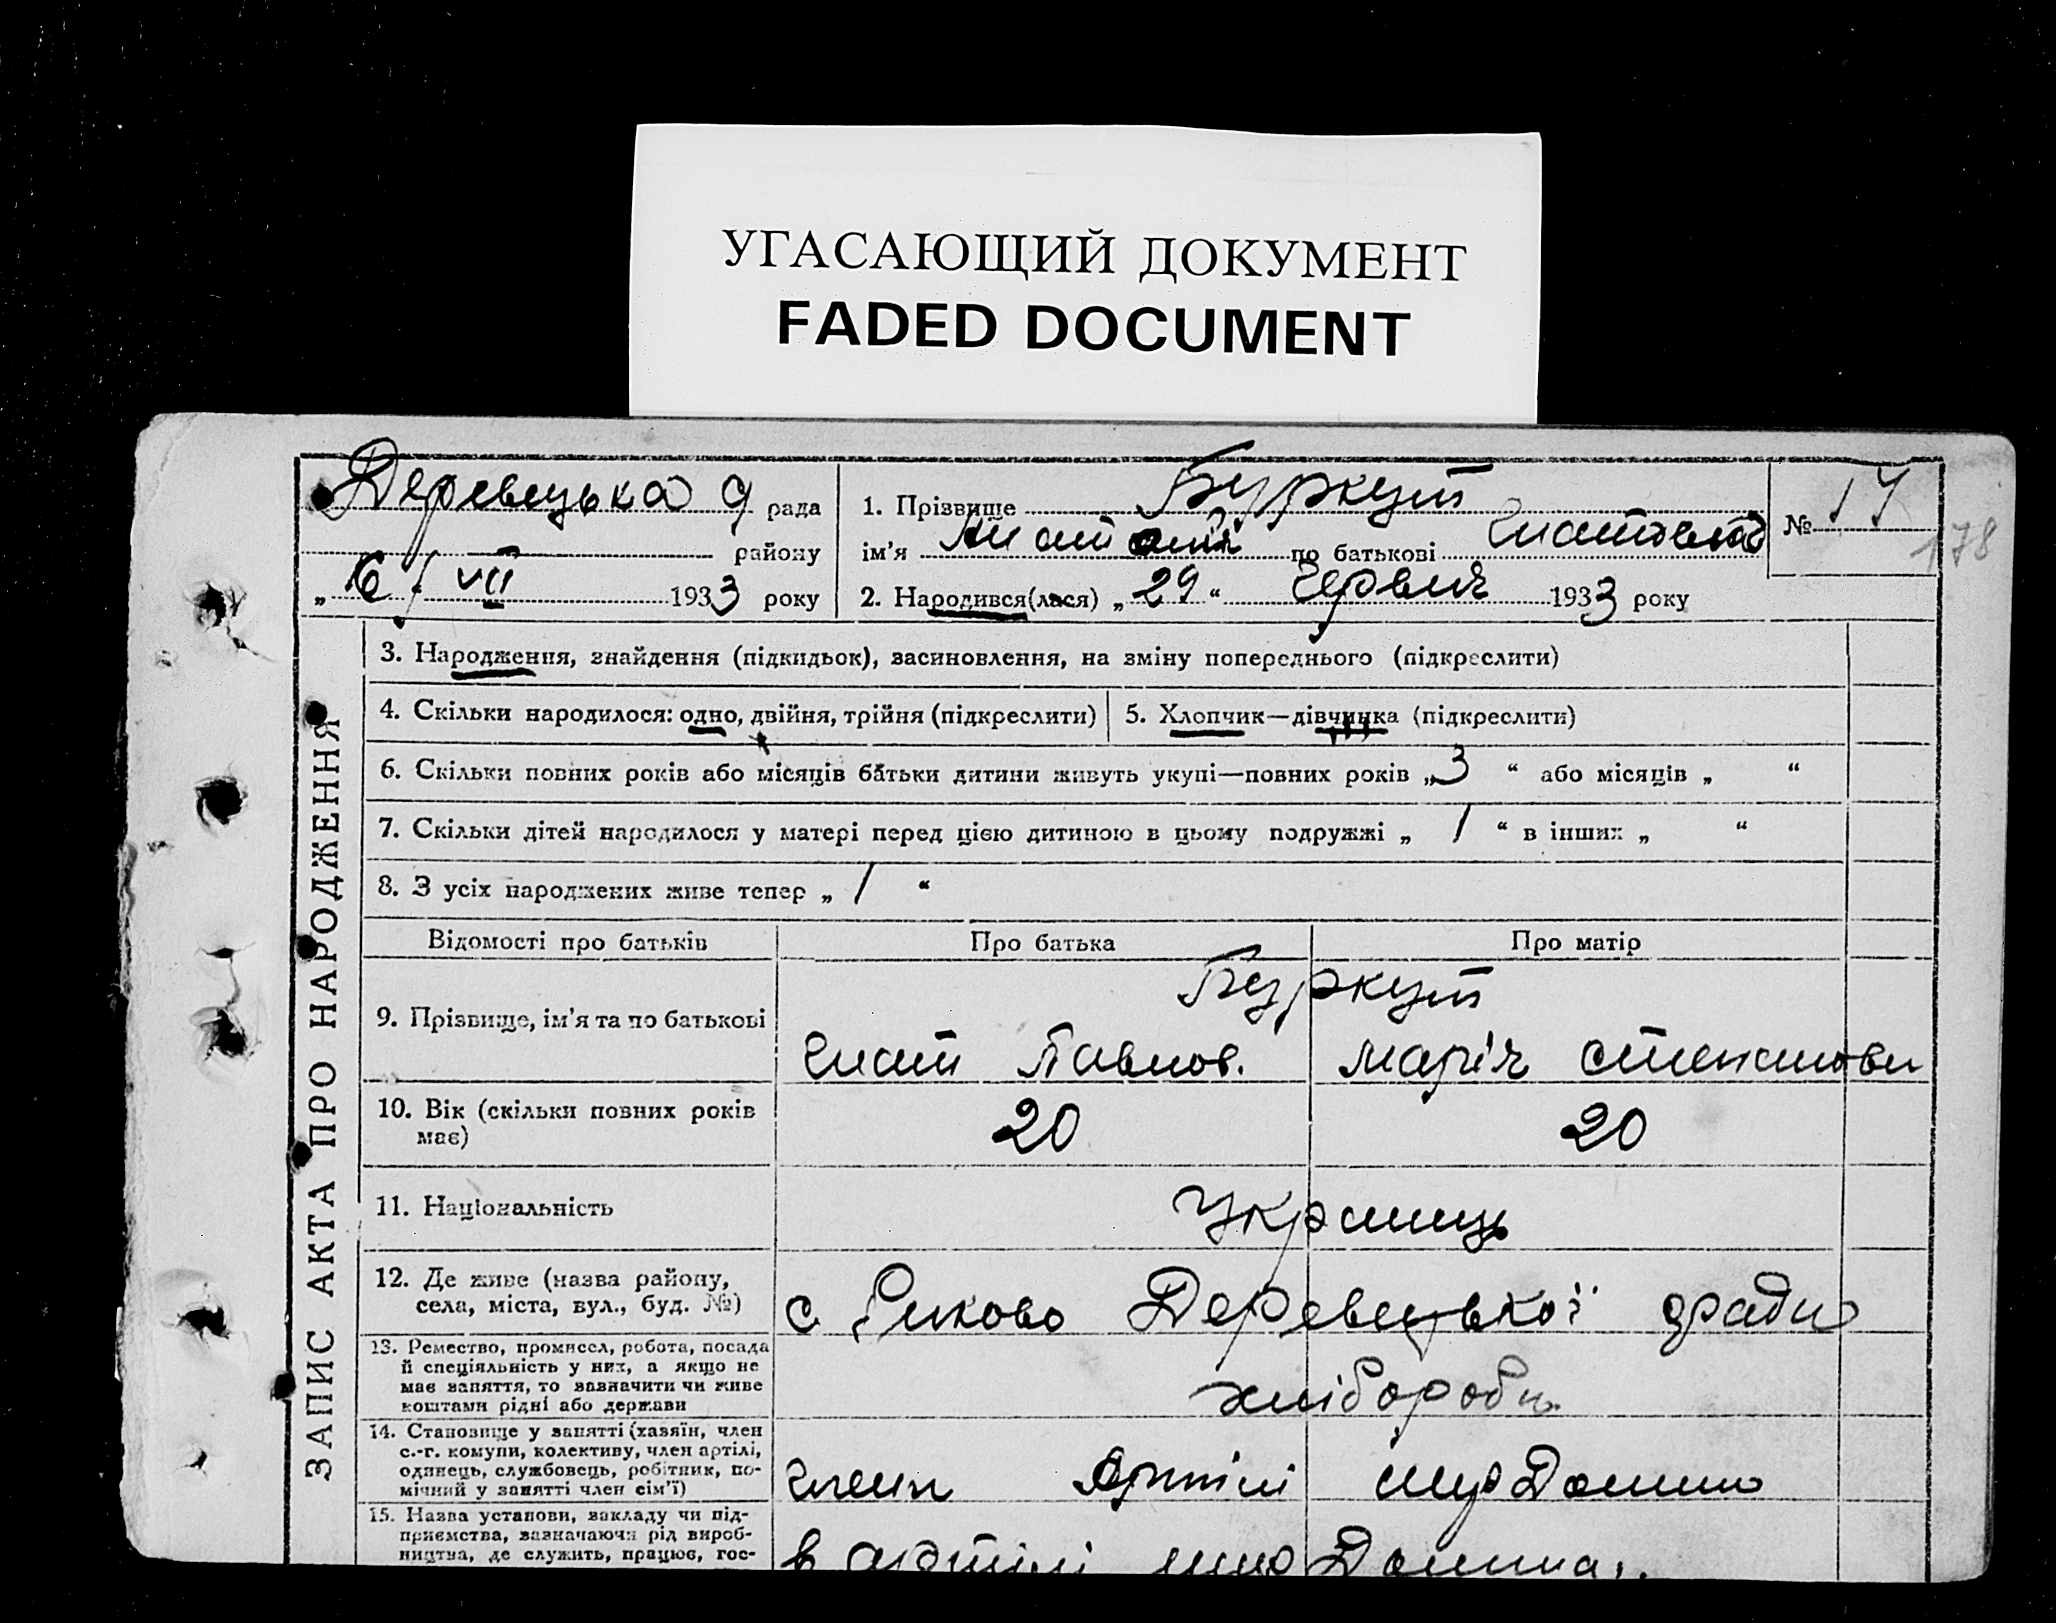 УГАСАЮЩИЙ ДОКУМЕНТ
FADED DOCUMENT
Деревецька с/ рада
району
„ 16 / VII 1933 року
1. Прізвище Буркут
ім’я по батькові Гнатович
2. Народився(лася) „ 29 “ Червня 1933 року
№ 17
178
ЗАПИС АКТА ПРО НАРОДЖЕННЯ
3. Народження, знайдення (підкидьок), засиновлення, на зміну попереднього (підкреслити)
4. Скільки народилося: одно, двійня, трійня (підкреслити)
5. Хлопчик—дівчинка (підкреслити)
6. Скільки повних років або місяців батьки дитини живуть укупі—повних років „ 3 “ або місяців „ “
7. Скільки дітей народилося у матері перед цією дитиною в цьому подружжі „ 1 “ в інших „ “
8. З усіх народжених живе тепер „ 1 “
Відомості про батьків
Про батька
Про матір
9. Прізвище, ім’я та по батькові
Буркут
Гнат Павлов.
Марія Степанови
10. Вік (скільки повних років
має)
20
20
11. Національність
Українць
12. Де живе (назва району,
села, міста, вул., буд. №)
с. Риково Деревецької зради
13. Ремество, промисел, робота, посада
й спеціяльність у них, а якщо не
має заняття, то зазначити чи живе
коштами рідні або держави
хлібороби
14. Становище у занятті (хазяїн, член
с.-г. комуни, колективу, член артілі,
одинець, службовець, робітник, по-
мічний у занятті член сім’ї)
член Артілі
15. Назва установи, закладу чи під-
приємства, зазначаючи рід вироб-
ництва, де служить, працює, гос-
в артілі